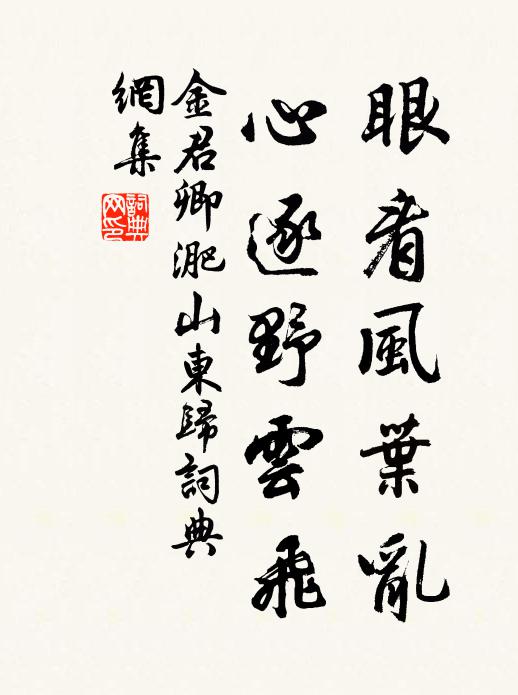 眼看風葉亂
心逐野雲飛
金君卿淝山東歸詞典
網集
詞典
网印